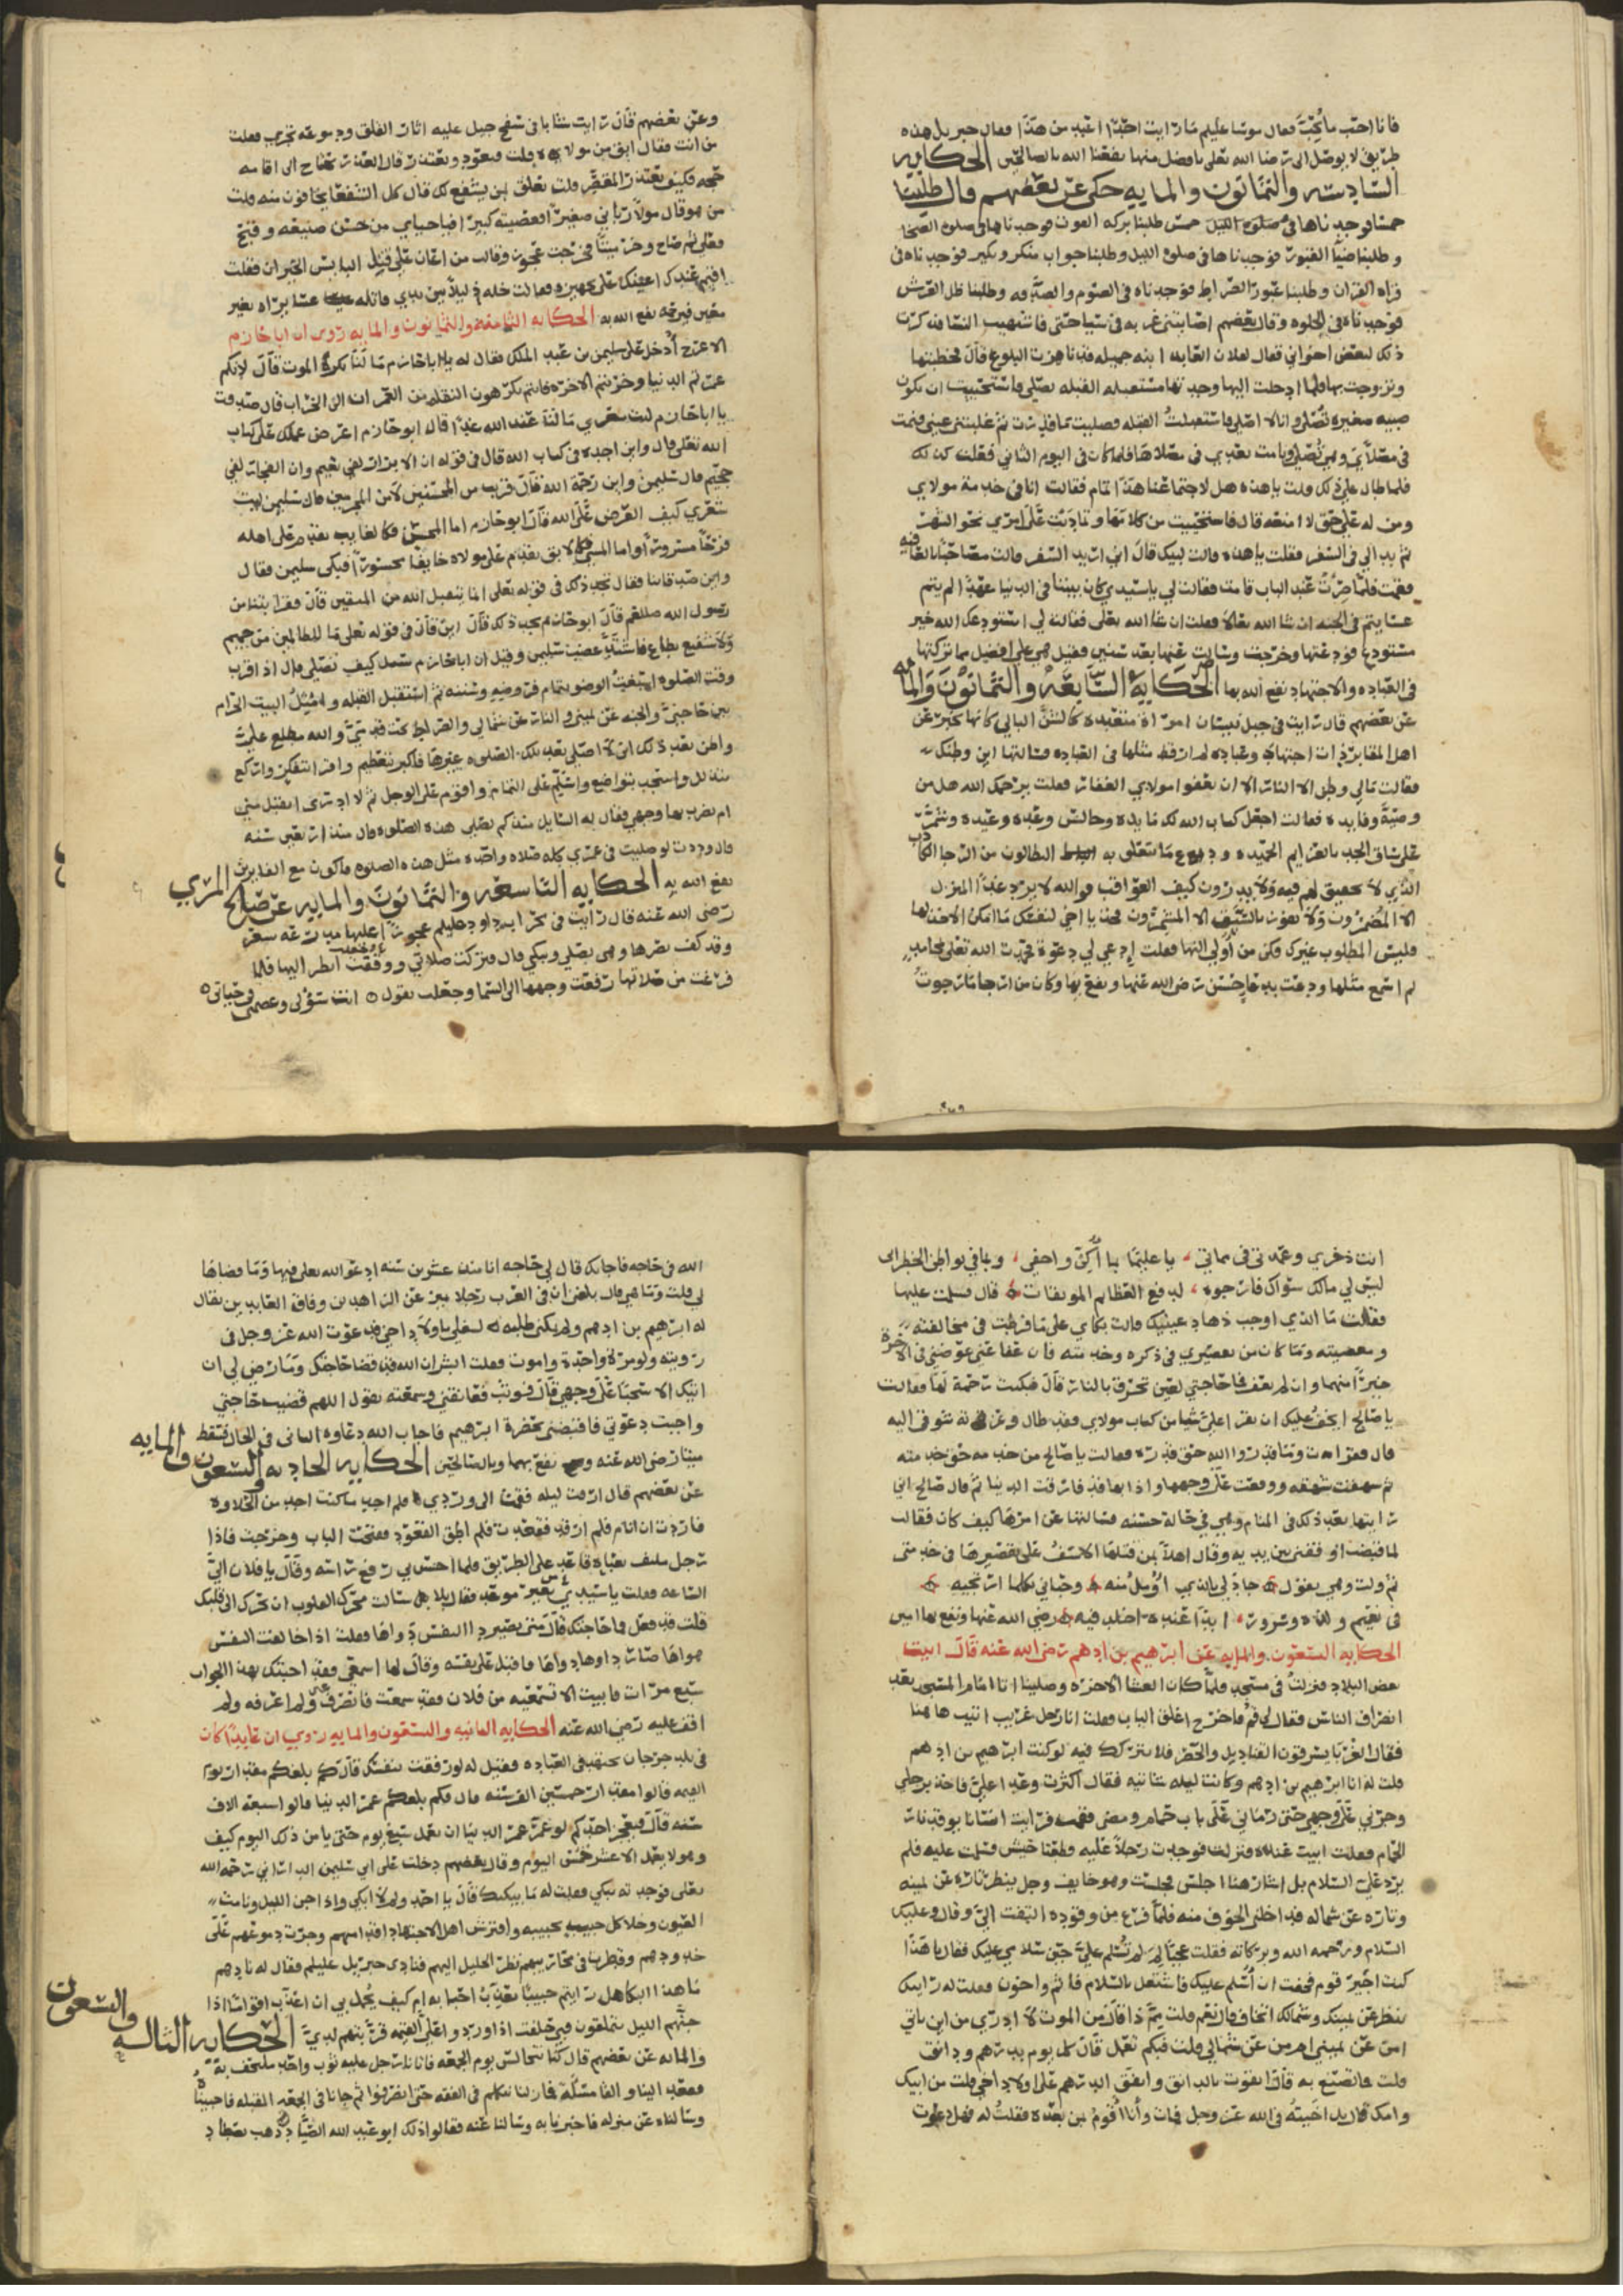 فانا احب ما تحب فقال موسى عليلم ما رايت احدا اعبد من هذا فقال جبريل هذه
طريق لا يوصل الى رضا الله تعلى بافضل منها نفعنا الله بالصالحين الحكايه
السادسه والثمانون والمايه حكى عن بعضهم قال طلبنا
خمسا فوجدناها في خمس طلبنا بركة القوت فوجدناها في صلوة الضحا
وطلبنا ضيا القبور فوجدناها في صلوة الليل وطلبنا جواب منكر ونكير فوجدناه في
قراة القران وطلبنا عبور الصراط فوجدناه في الصوم والصدقه وطلبنا ظل العرش
فوجدناه في الخلوه وقال بعضهم اصابتني غربه في سياحتي فذكرت
ذلك لبعض اخواني فقال لفلان العابد ابنه جميله قد ناهزت البلوغ قال فخطبتها
وتزوجت بها فلما ادخلت اليها وجدتها مستقبله القبله تصلي فاستحييت ان تكون
صبيه صغيره تصلي وانا لا اصلي فاستقبلت القبله فصليت ما قدرت ثم غلبتني عيني فنمت
في مصلاي وهي تصلي ونامت بعدي في مصلاها فلما كان في اليوم الثاني فعلت كذلك
فلما طال علي ذلك قلت يا هذه هل لاجتماعنا هذا تمام فقالت انا في خدمة مولاي
ومن له علي حق لا امنعه قال فاستحييت من كلامها وتماديت على امري نحو الشهر
ثم بدا لي في السفر فقلت يا هذه قالت لبيك قال اني اريد السفر قالت مصاحبا بالعافيه
فقمت فلما صرت عند الباب قامت فقالت لي يا سيدي كان بيننا في الدنيا عهدا لم يتم
عسا يتم في الجنه ان شا الله تعالا فقلت ان شا الله تعلى فقالت لي استودعك الله خير
مستودع فودعتها وخرجت وسالت عنها بعد سنين فقيل هي على افضل مما تركتها
في العباده والاجتهاد نفع الله بها الحكاية السابعة والثمانون والمايه
عن بعضهم قال رايت في جبل لبنان امراة متعبده كالشن البالي كانها تخبر عن
اهل المقابر ذات اجتهاد وعباده لم ار قط مثلها في العباده فسالتها اين وطنك
فقالت مالي وطن الا النار الا ان يعفوا مولاي الغفار فقلت يرحمك الله هل من
وصية وفايده فقالت اجعل كتاب الله لك مايده وجالس وعده وعيده وشمر
على ساق الجد بالعزايم الحميده ودع ما يتعلق به البطالون من الرجا الكاذب
الذي لا تحقيق لهم فيه ولا يدرون كيف العواقب فوالله لا يرد غدا المنزل
الا المضمرون ولا يفوز بالسبق الا المشمرون فخذ يا اخي لنفسك ما امكن الاخذ لها
فليس المطلوب غيرك وكن من اولي النها فقلت ادعي لي دعوة فحمدت الله تعلى بمحامد
لم اسمع مثلها ودعت بدعا حسن رضي الله عنها ونفع بها وكان من الرجا ما رجوت
وعن بعضهم قال رايت شابا في سفح جبل عليه اثار القلق ودموعه تجري فقلت
من انت فقال ابق من مولاه قلت فيعود ويعتذر قال العذر يحتاج الى اقامه
حجه فكيف يعتذر المقصر قلت يتعلق بمن يشفع له قال كل الشفعا يخافون منه قلت
من هو قال مولا رباني صغيرا فعصيته كبيرا فيا حياي من حسن صنيعه وقبح
فعلي ثم صاح وخر ميتا فخرجت عجوز وقالت من اعان على قتل البايس الحيران فقلت
اقيم عندك اعينك على تجهيزه فقالت خله ذليلا بين يدي قاتله عسا يراه بغير
معين فيرحمه نفع الله به الحكايه الثامنه والثمانون والمايه روى ان ابا حازم
الاعرج ادخل على سليمن بن عبد الملك فقال له يا ابا حازم ما لنا نكره الموت قال لانكم
عمرتم الدنيا وخربتم الاخره فانتم تكرهون النقله من العمران الى الخراب قال صدقت
يا ابا حازم ليت شعري ما لنا عند الله غدا قال ابو حازم اعرض عملك على كتاب
الله تعلى قال واين اجده في كتاب الله قال في قوله ان الابرار لفي نعيم وان الفجار لفي
جحيم قال سليمن واين رحمة الله قال قريب من المحسنين لا من المجرمين قال سليمن ليت
شعري كيف العرض على الله قال ابو حازم اما المحسن فكالغايب يقدم على اهله
فرحا مسرورا واما المسي فكالابق يقدم على مولاه خايفا محسورا فبكى سليمن فقال
رسول الله صلعم قال ابو حازم تجد ذلك قال اين قال في قوله تعلى ما للظالمين من حميم
ولا شفيع يطاع وقيل ان ابا حازم سئل كيف تصلي قال اذا قرب
وقت الصلوه اسبغت الوضو بتمام فروضه وسننه ثم استقبل القبله وامثل البيت الحرام
بين حاجبي والجنه عن يميني والنار عن شمالي والصراط تحت قدمي والله مطلع علي
واظن بعد ذلك اني لا اصلي بعد تلك الصلوه غيرها فاكبر بتعظيم واقرا بتفكر واركع
بتذلل واسجد بتواضع واسلم على التمام واقوم على الوجل ثم لا ادري ايقبل مني
ام يضرب بها وجهي فقال له السايل منذ كم تصلي هذه الصلوه قال منذ اربعين سنه
قال وددت لو صليت في عمري كله صلاه واحده مثل هذه الصلوه فاكون مع الفايزين
نفع الله به الحكايه التاسعه والثمانون والمايه عن صالح المري
رضي الله عنه قال رايت في محراب داود عليلم عجوزا عليها مدرعه شعر
وقد كف بصرها وهي تصلي وتبكي قال فتركت صلاتي ووقفت انظر اليها فلما
فرغت من صلاتها رفعت وجهها الى السما وجعلت تقول ه انت سؤلي وعصمتي وحياتي ه
انت ذخري وعمدتي في مماتي ، يا عليما بما اكن واخفي ، وبما في بواطن الخطرات
ليس لي مالك سواك فارجوه ، لدفع العظايم الموبقات ه قال فسلمت عليها
فقالت ما الذي اوجب ذهاب عينيك قالت بكاي على ما فرطت في مخالفته
ومعصيته وما كان من تقصيري في ذكره وخدمته فان عفا عني عوضني في الاخرة
خيرا منهما وان لم يعف فما حاجتي لعين تحرق بالنار قال فبكيت رحمة لها فقالت
يا صالح ايخف عليك ان تقرا علي شيا من كتاب مولاي فقد طال وعزته شوقي اليه
قال فقرات وما قدروا الله حق قدره فقالت يا صالح من خدمه حق خدمته
ثم شهقت شهقه ووقعت على وجهها واذا بها قد فارقت الدنيا ثم قال صالح اني
رايتها بعد ذلك في المنام وهي في حالة حسنه فسالتها عن امرها كيف كان فقالت
لما قبضت اوقفني بين يديه وقال اهلا بمن قتلها الاسف على تقصيرها في خدمتي
ثم ولت وهي تقول ه جاد لي بالذي اؤمل منه ه وحباني بكلما ارتجيه ه
في نعيم ولذه وسرور ، ابدا عنده اخلد فيه ه رضي الله عنها ونفع بها امين
الحكايه التسعون والمايه عن ابرهيم بن ادهم رضي الله عنه قال اتيت
بعض البلاد فنزلت في مسجد فلما كان العشا الاخره وصلينا اتا امام المسجد بعد
انصراف الناس فقال لي قم فاخرج اغلق الباب فقلت انا رجل غريب ابيت هاهنا
فقال الغربا يسرقون القناديل والحصر فلا نترك فيه لو كنت ابرهيم بن ادهم
قلت له انا ابرهيم بن ادهم وكانت ليله شاتيه فقال اكثرت وعدا علي فاخذ برجلي
وجرني على وجهي حتى رماني على باب حمام ومضى فقمت فرايت انسانا يوقد نار
الحمام فقلت ابيت عنده فنزلت فوجدت رجلا عليه قطعتا خيش فسلمت عليه فلم
يرد علي السلام بل اشار هذا اجلس فجلست وهو خايف وجل ينظر تاره عن يمينه
وتاره عن شماله فداخلني الخوف منه فلما فرغ من وقوده التفت الي وقال وعليك
السلام ورحمه الله وبركاته فقلت عجبا لم لم تسلم علي حين سلامي عليك فقال يا هذا
كنت اجير قوم فخفت ان اسلم عليك فاشتغل بالسلام فاثم واخون فقلت له رايتك
تنظر عن يمينك وشمالك اتخاف قال نعم قلت مم ذا قال من الموت لا ادري من اين ياتي
امن عن يميني ام من عن شمالي قلت فبكم تعمل قال كل يوم بدرهم ودانق
قلت فما تصنع به قال اتقوت بالدانق وانفق الدرهم على اولاد اخي قلت من ابيك
وامك قال بل احببته في الله عز وجل فمات وانا اقوم بمن بعده فقلت له فهل دعوت
الله في حاجه فاجابك قال لي حاجه انا منذ عشرين سنه ادعو الله تعلى فيها وما قضاها
لي قلت وما هي قال بلغني ان في العرب رجلا تميز عن الزاهدين وفاق العابدين يقال
له ابرهيم بن ادهم
رويته ولو مرة واحدة واموت فقلت ابشر ان الله قد قضا حاجتك وما رضي لي ان
اتيك الا سحبا على وجهي قال فوثب فعانقني وسمعته يقول اللهم قضيت حاجتي
واجبت دعوتي فاقبضني بحضرة ابرهيم فاجاب الله دعاوه الثاني في الحال فسقط
ميتا رضي الله عنه ونفع بهما وبالصالحين الحكايه الحاديه والتسعون والمايه
عن بعضهم قال ارقت ليله فقمت الى وردي فلم اجد ما كنت اجد من الحلاوه
فاردت ان انام فلم ارقد فقعدت فلم اطق القعود ففتحت الباب وخرجت فاذا
رجل ملتف بعباه قاعد على الطريق فلما احس بي رفع راسه وقال يا فلان الي
الساعه فقلت يا سيدي من غير موعد فقال بلا سالت محرك القلوب ان يحرك الي قلبك
قلت قد فعل فما حاجتك قال متى يصير دا النفس دواها فقلت اذا خالفت النفس
هواها صار داوها دواها فاقبل على نفسه وقال لها اسمعي فقد اجبتك بهذا الجواب
سبع مرات فابيت الا تسمعيه من فلان فقد سمعت فانصرف عني ولم اعرفه ولم
اقف عليه رضي الله عنه الحكايه الثانيه والتسعون والمايه روي ان عابدا كان
في بلد جرجان مجتهد في العباده فقيل له لو رفقت بنفسك قال كم بلغكم مقدار يوم
القيمه قالوا مقدار خمسين الف سنه قال فكم بلغكم عمر الدنيا قالوا سبعه الاف
سنه قال فيعجز احدكم لو عمر عمر الدنيا ان يعمل سبع يوم حتى يامن ذلك اليوم كيف
وهو لا يعمل الا عشر خمس اليوم وقال بعضهم دخلت على ابي سليمن الداراني رحمه الله
تعلى فوجدته يبكي فقلت له ما يبكيك قال يا احمد ولم لا ابكي واذا جن الليل ونامت
العيون وخلا كل حبيب بحبيبه وافترش اهل الاجتهاد اقدامهم وجرت دموعهم على
خدودهم وقطرت في محاريبهم نظر الجليل اليهم فنادى جبريل عليلم فقال له نادهم
ما هذا البكا هل رايتم حبيبا يعذب احبابه ام كيف يجمل بي ان اعذب اقواما اذا
جنهم الليل تملقون فبي حلفت اذا وردوا علي القيمه قربتهم لدي الحكايه الثالثه والتسعون
والمايه عن بعضهم قال كنا نتجالس يوم الجمعه فاتانا رجل عليه ثوب واحد ملتحف به
فقعد الينا والقا مسئله فما زلنا نتكلم في الفقه حتى انصرفوا ثم جانا في الجمعه المقبله فاحببناه
وسالناه عن منزله فاخبرنا به وسالنا عنه فقالوا ذلك ابو عبد الله الصياد ذهب يصطاد